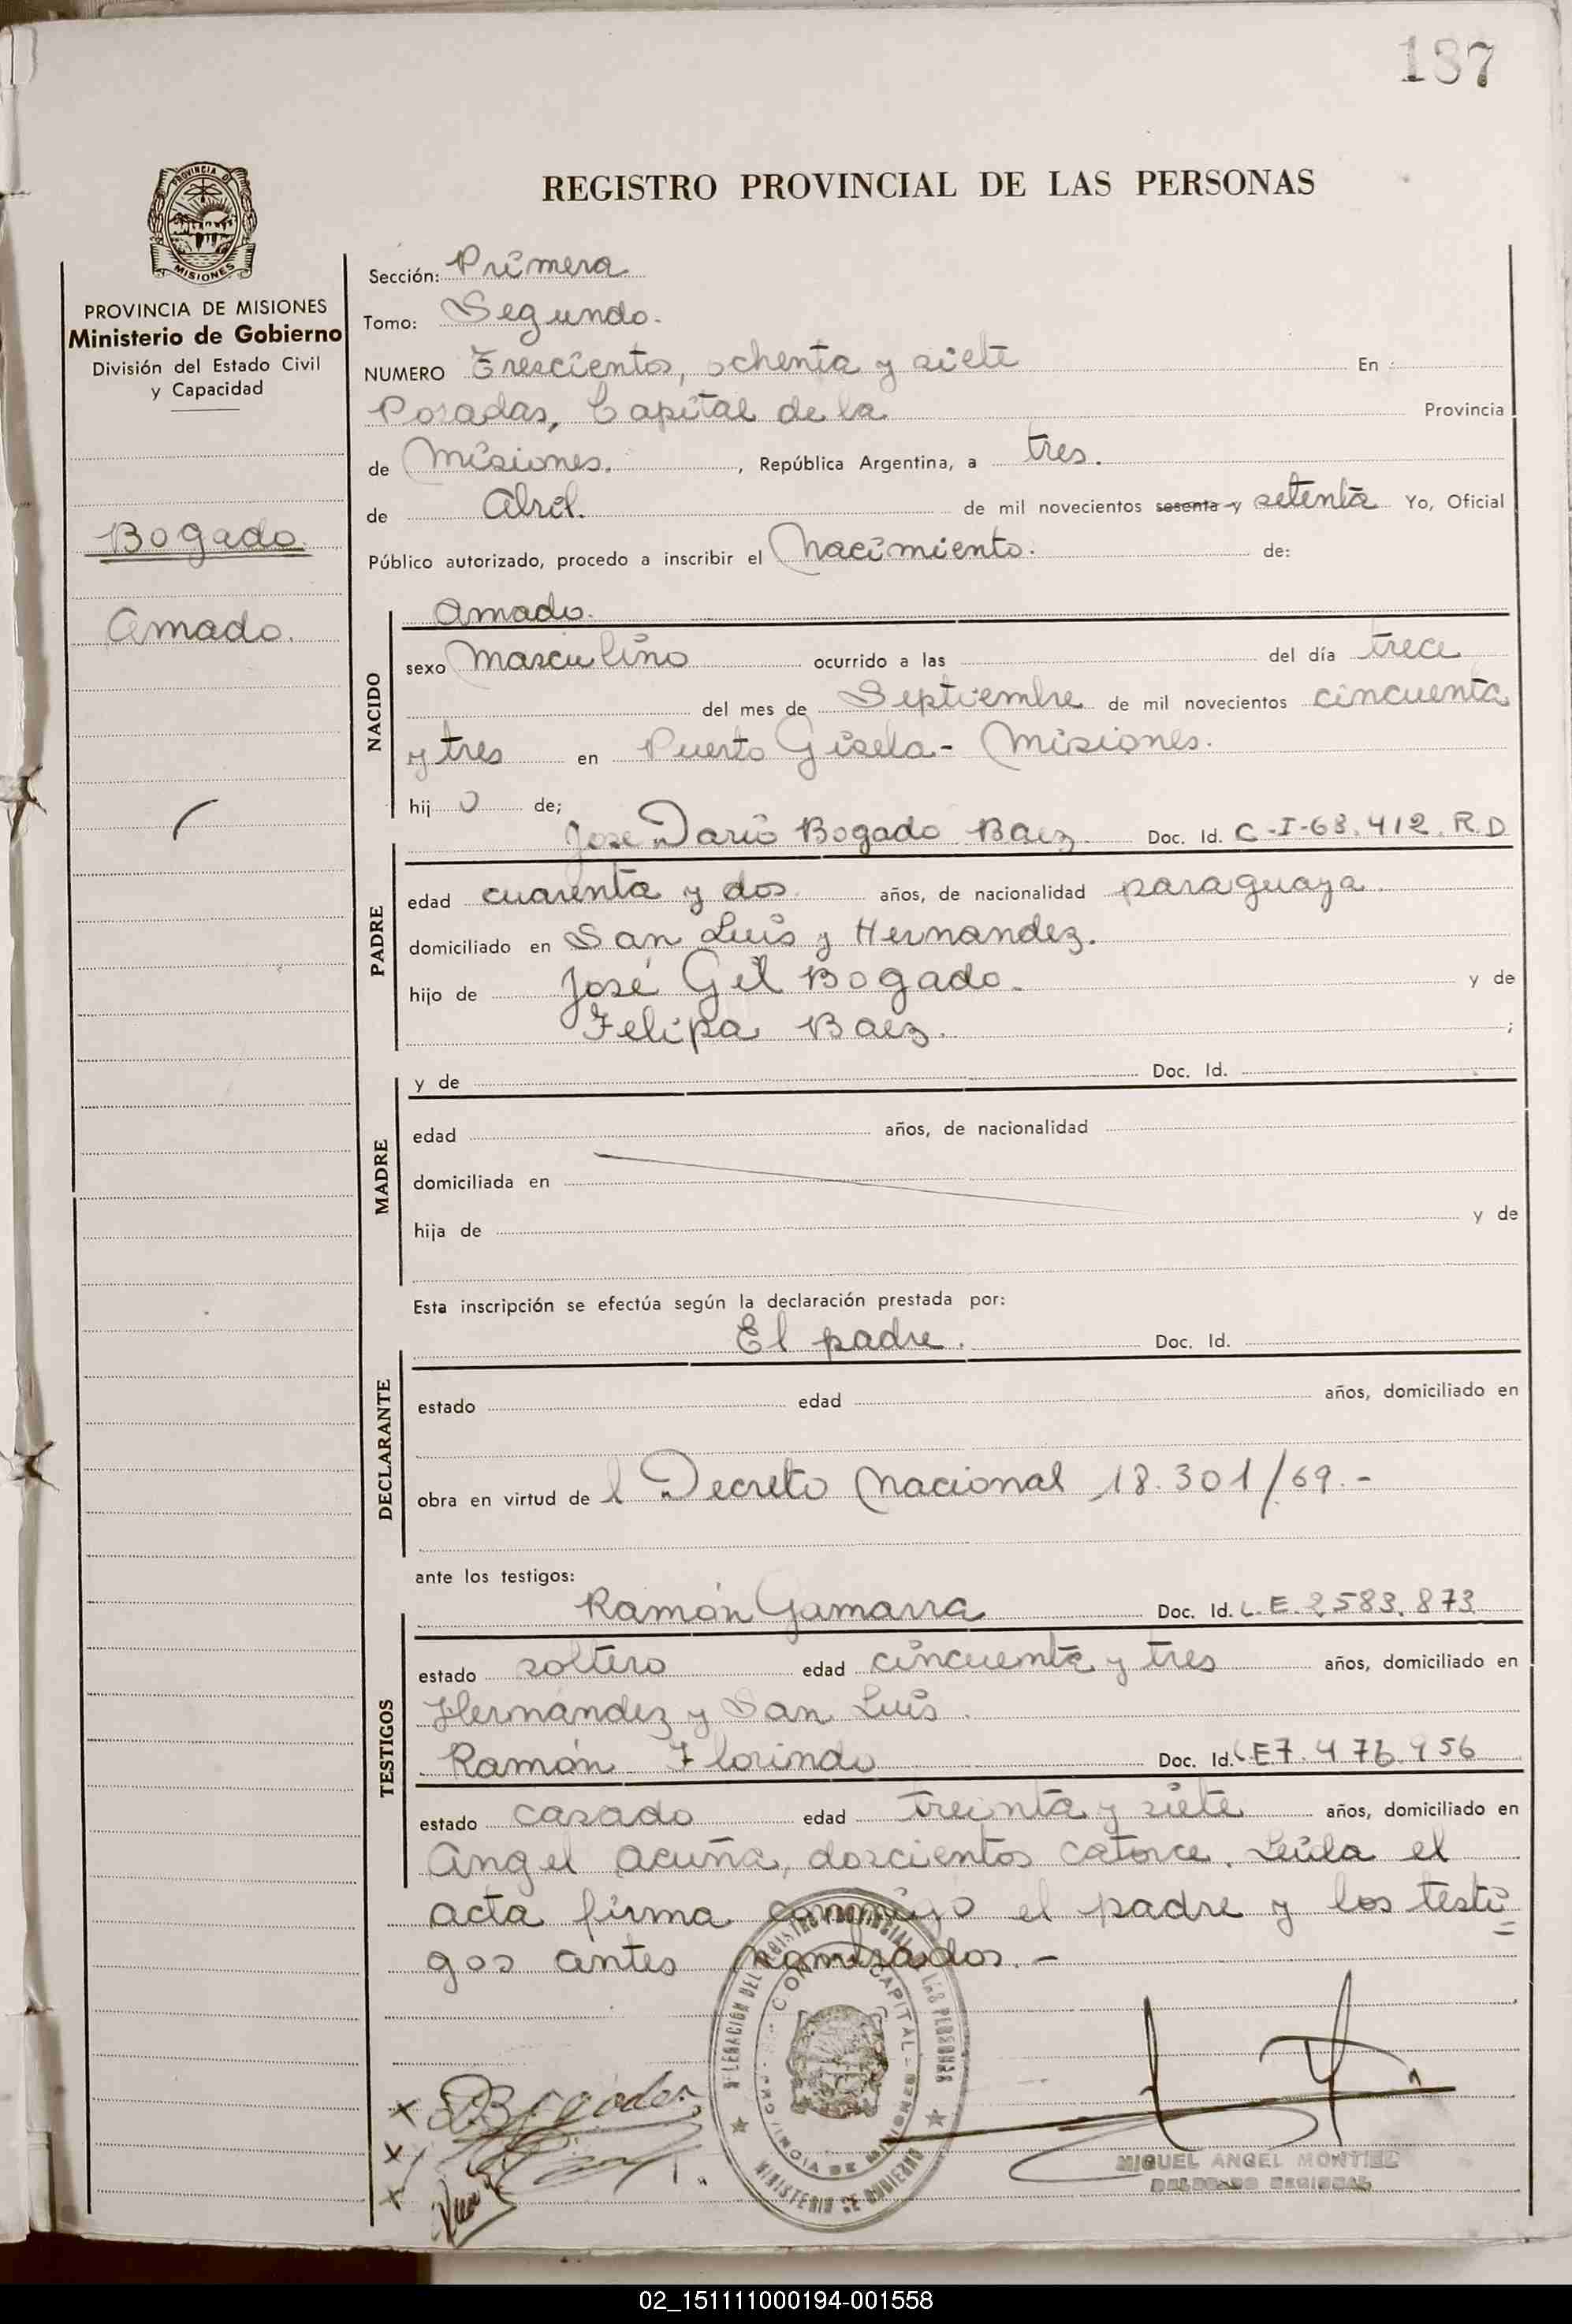 187
PROVINCIA DE
MISIONES
REGISTRO PROVINCIAL DE LAS PERSONAS
PROVINCIA DE MISIONES
Ministerio de Gobierno
División del Estado Civil
y Capacidad
Bogado
Amado.
Sección: Primera
Tomo: Segundo.
NUMERO Trescientos, ochenta y siete En
Posadas, Capital de la Provincia
de Misiones. , República Argentina, a tres.
de Abril. de mil novecientos sesenta y setenta Yo, Oficial
Público autorizado, procedo a inscribir el Nacimiento. de:
NACIDO
Amado.
sexo Masculino ocurrido a las del día trece
del mes de Septiembre de mil novecientos cincuenta
y tres en Puerto Gisela - Misiones.
hij o de;
PADRE
José Dario Bogado Baez Doc. Id. C-I-68.412. R.D
edad cuarenta y dos años, de nacionalidad paraguaya.
domiciliado en San Luis y Hernandez.
hijo de José Gil Bogado. y de
Felipa Baez. ;
MADRE
y de Doc. Id.
edad años, de nacionalidad
domiciliada en
hija de y de
Esta inscripción se efectúa según la declaración prestada por:
DECLARANTE
El padre. Doc. Id.
estado edad años, domiciliado en
obra en virtud de l Decreto Nacional 18.301/69.-
ante los testigos:
TESTIGOS
Ramón Gamarra Doc. Id. L.E. 2583.873
estado soltero edad cincuenta y tres años, domiciliado en
Hernández y San Luis.
Ramón Florindo Doc. Id. LE7.476.956
estado casado edad treinta y siete años, domiciliado en
Angel Acuña, doscientos catorce. Leída el
acta firma conmigo el padre y los testi
gos antes nombrados.-
DELEGACIÓN DEL REGISTRO PROVINCIAL DE LAS PERSONAS
CAPITAL
PROVINCIA DE MISIONES
MINISTERIO DE GOBIERNO
MIGUEL ANGEL MONTIEL
DELEGADO REGIONAL
02_151111000194-001558